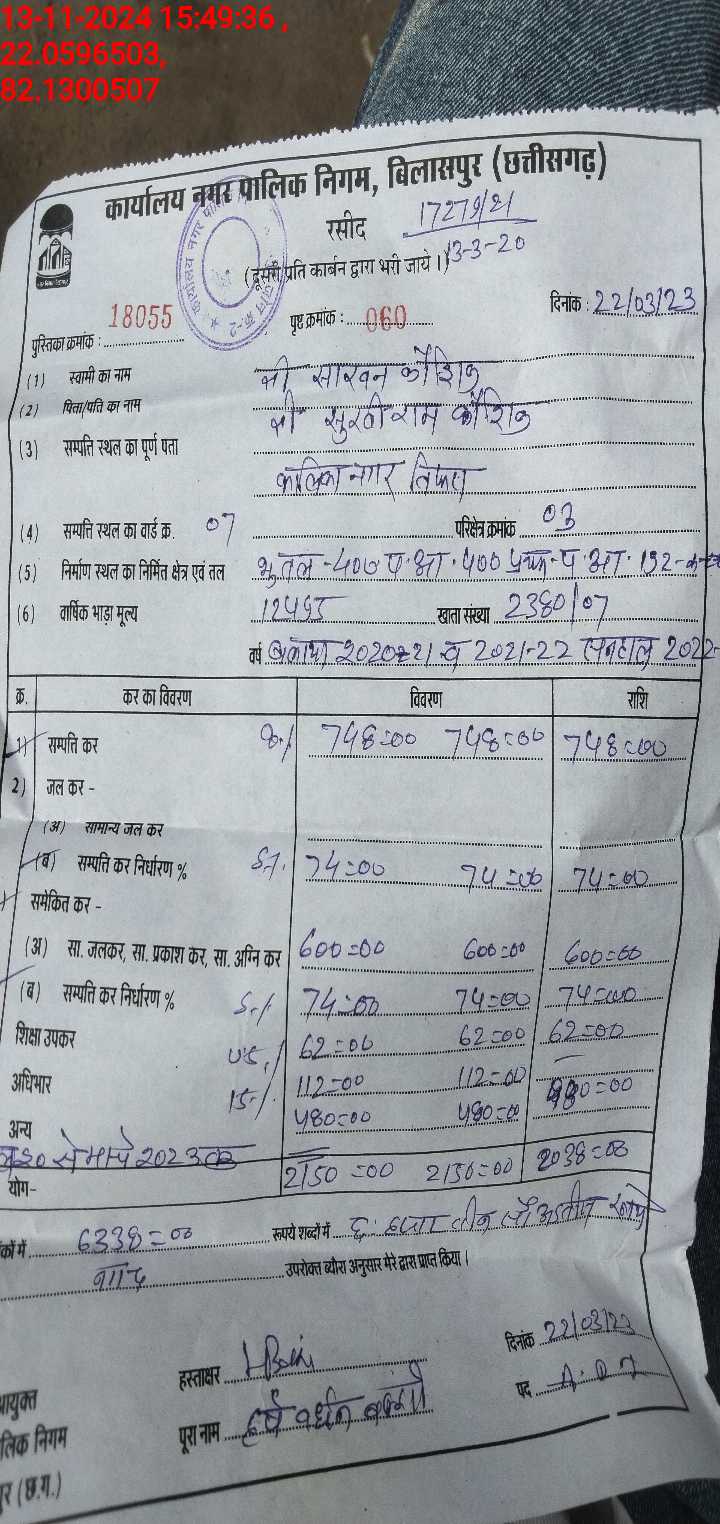 13-11-2024 15:49:36 ,
22.0596503,
82.1300507
कार्यालय नगर पालिक निगम, बिलासपुर (छत्तीसगढ़)
रसीद 17279/21
(दूसरी प्रति कार्बन द्वारा भरी जाये।) 13-3-20
पुस्तिका क्रमांक : 18055 पृष्ठ क्रमांक : 060 दिनांक : 22/03/23
(1) स्वामी का नाम श्री साखन कौशिक
(2) पिता/पति का नाम श्री सुखीराम कौशिक
(3) सम्पत्ति स्थल का पूर्ण पता
कालिका नगर तिफरा
(4) सम्पत्ति स्थल का वार्ड क्र. 07 परिक्षेत्र क्रमांक 03
(5) निर्माण स्थल का निर्मित क्षेत्र एवं तल भूतल -400 प.आ. 400 प्रथम-प.आ. 192-
(6) वार्षिक भाड़ा मूल्य खाता संख्या 2380/07
वर्ष बकाया 2020-21 व 2021-22 हाल 2022-
क्र. कर का विवरण विवरण राशि
1) सम्पत्ति कर 748=00 748=00 748=00
2) जल कर -
(अ) सामान्य जल कर
(ब) सम्पत्ति कर निर्धारण % 74=00 74=00 74=00
समेकित कर -
(अ) सा. जलकर, सा. प्रकाश कर, सा. अग्नि कर 600=00 600=00 600=00
(ब) सम्पत्ति कर निर्धारण % 74=00 74=00 74=00
शिक्षा उपकर 62=00 62=00 62=00
अधिभार 15% 112=00 112=00 —
अन्य 480=00 480=00 480=00
20 से मार्च 2023 तक
योग- 2150=00 2150=00 2038=00
कों में 6338=00 रूपये शब्दों में छः हजार तीन सौ अड़तीस रूपये
मात्र उपरोक्त ब्यौरा अनुसार मेरे द्वारा प्राप्त किया।
हस्ताक्षर दिनांक 22/03/23
आयुक्त
लिक निगम पूरा नाम हर्ष वर्धन पद
पुर (छ.ग.)